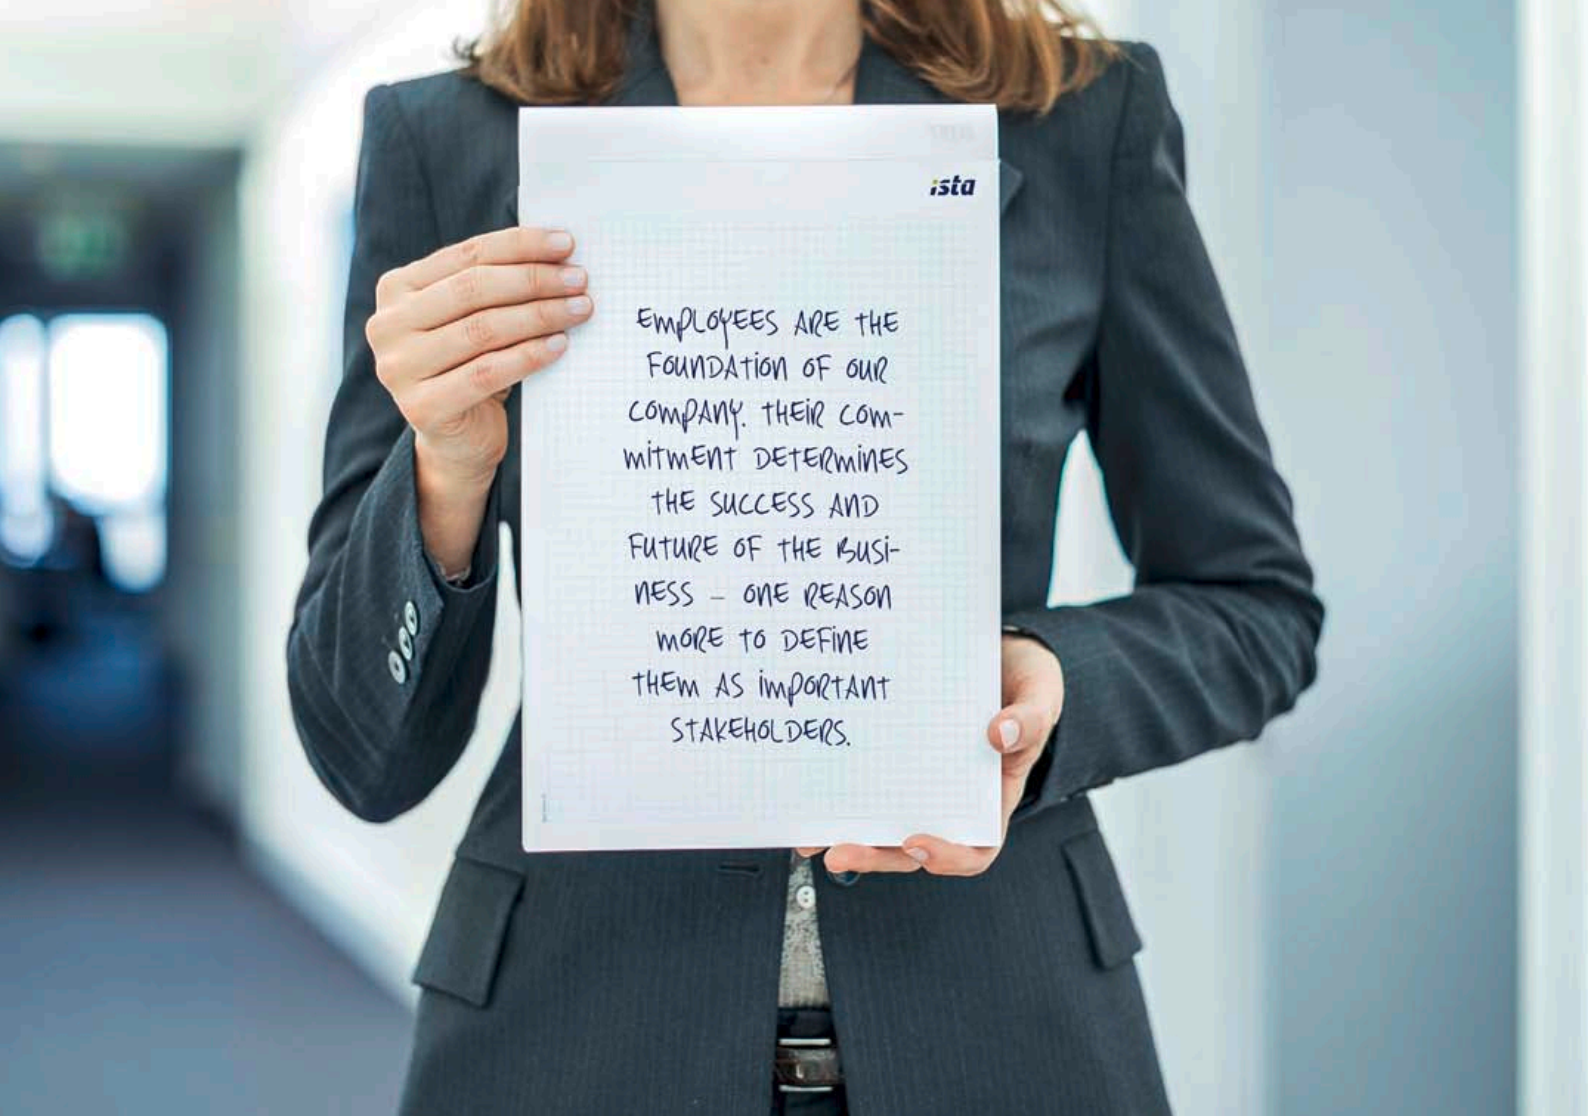 ista
EMPLOYEES ARE THE
FOUNDATION OF OUR
COMPANY. THEIR COM-
MITMENT DETERMINES
THE SUCCESS AND
FUTURE OF THE BUSI-
NESS – ONE REASON
MORE TO DEFINE
THEM AS IMPORTANT
STAKEHOLDERS.